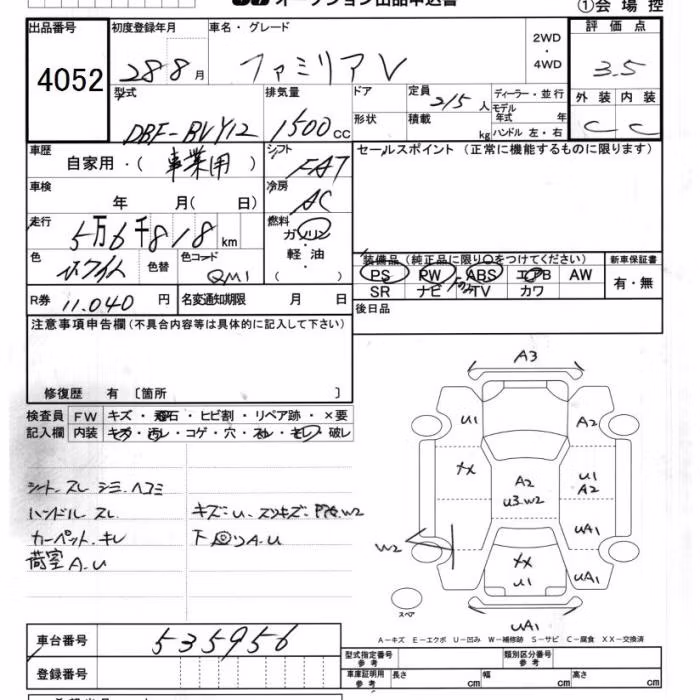 オークション出品申込書
①会場控
出品番号
4052
初度登録年月
28 8月
車名・グレード
ファミリアV
2WD
・
4WD
評価点
3.5
外装 内装
C C
型式
DBF-BVY12
排気量
1500cc
ドア
形状
定員
2/5人
積載
kg
ディーラー・並行
モデル
年式 年
ハンドル 左・右
車歴
自家用・(事業用)
シフト
FAT
セールスポイント(正常に機能するものに限ります)
車検
年 月( 日)
冷房
AC
走行
5万6千818km
燃料
ガソリン
軽・油
( )
色
ホワイト
色替
色コード
QM1
装備品(純正品に限り○をつけてください)
PS PW ABS エアB AW
SR ナビ TV カワ
新車保証書
有・無
R券 11.040円
名変通知期限 月 日
後日品
注意事項申告欄(不具合内容等は具体的に記入して下さい)
修復歴 有 〔箇所 〕
検査員
記入欄
FW キズ・飛石・ヒビ割・リペア跡・×要
内装 キズ・汚レ・コゲ・穴・スレ・キレ・破レ
シート.スレ シミ.ヘコミ
ハンドル スレ
カーペット.キレ
荷室A.U
キズ:U.スリキズ:
下回りA.U
A3
U1
A2
XX
A2
U3.W2
U1
A2
UA1
W2
XX
U1
UA1
スペア
UA1
A-キズ E-エクボ U-凹み W-補修跡 S-サビ C-腐食 XX-交換済
車台番号
535956
登録番号
型式指定番号
参考
類別区分番号
参考
車庫証明用
参考
長さ cm
幅 cm
高さ cm